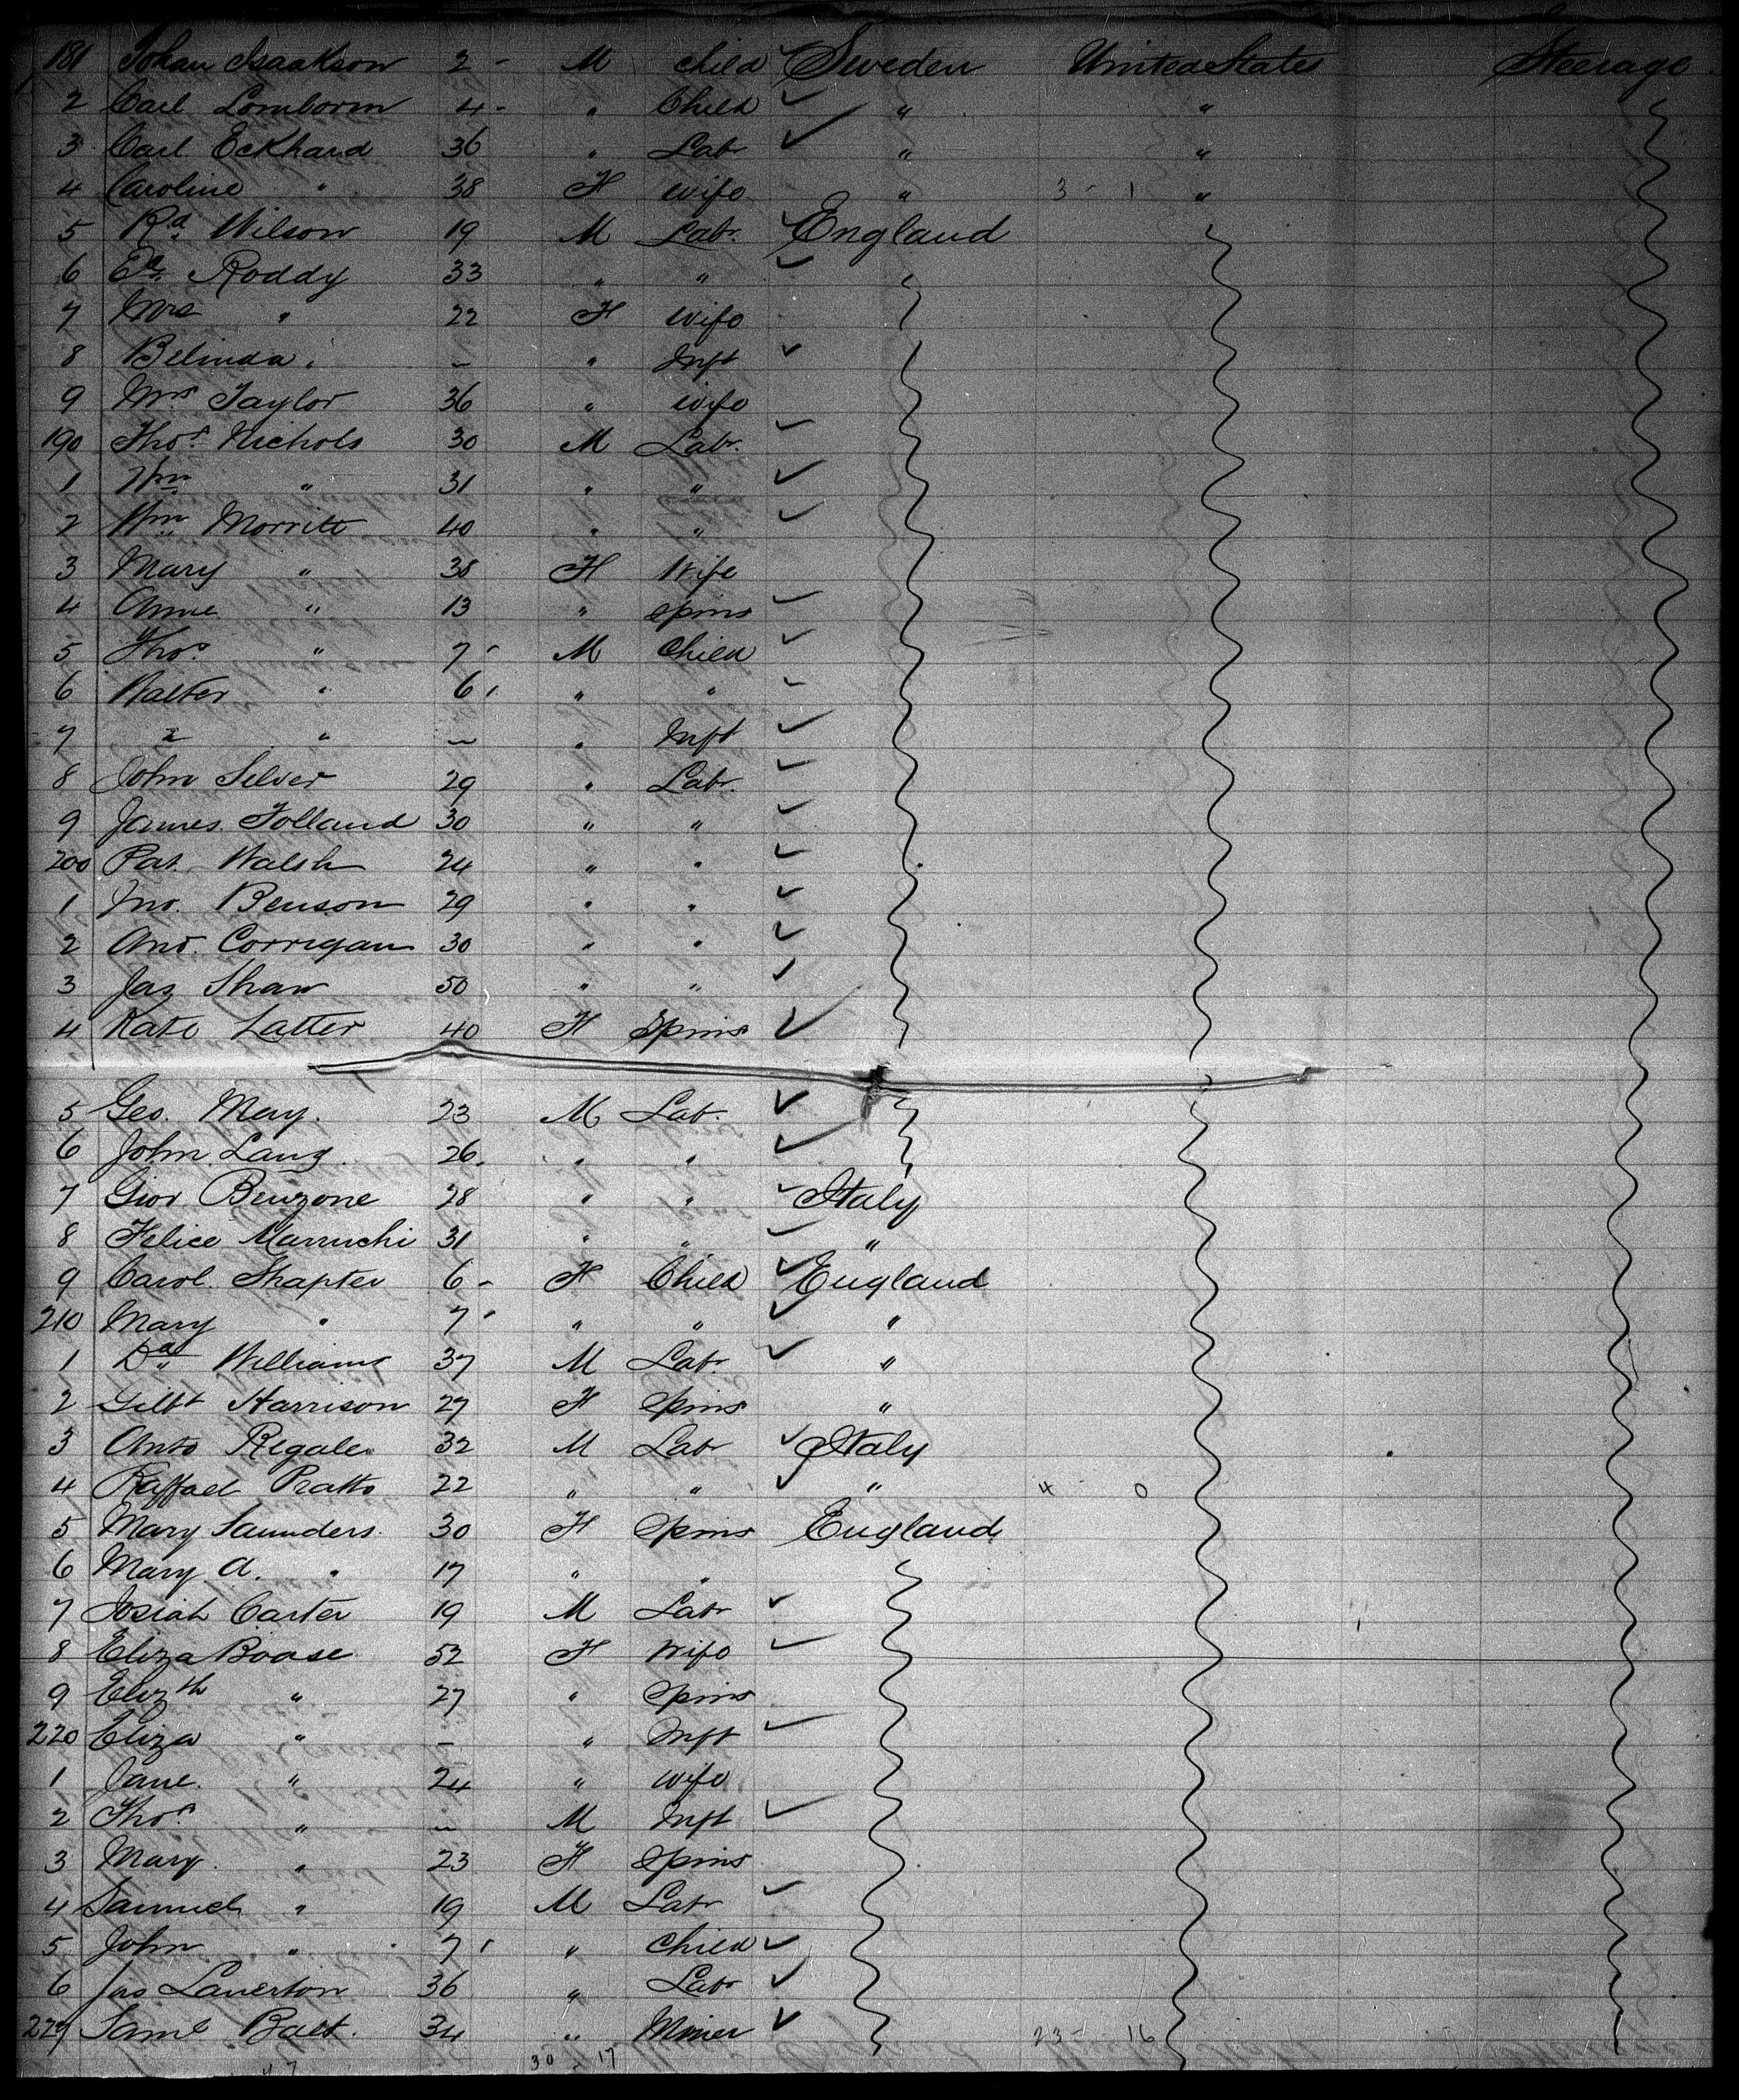 181 Johan Isaakson 2 - M child Sweden United States Steerage
2 Carl Lomborm 4 - " Child " "
3 Carl Eckhard 36 " Labr " "
4 Caroline " 38 F wife " 3 - 1 "
5 Rd Wilson 19 M Labr. England
6 Ed Roddy 33 " "
7 Mrs " 22 F wife
8 Belinda " – " Inft
9 Mrs Taylor 36 " wife
190 Thos Nichols 30 M Labr.
1 Wm " 31 " "
2 Wm Morritt 40 " "
3 Mary " 38 F Wife
4 Anne " 13 " spins
5 Thos " 7 M Child
6 Walter " 6 " "
7 " " – " Inft
8 John Silver 29 " Labr.
9 James Tolland 30 " "
200 Pat. Walsh 24 " "
1 Jno. Benson 29 " "
2 And. Corrigan 30 " "
3 Jas Shaw 50 " "
4 Kate Latter 40 F Spins
5 Geo. May. 23 M Lab.
6 John Lang 26 " "
7 Giov Benzone 28 " " Italy
8 Felice Marruchi 31 " " "
9 Carol. Shapter 6 - F Child England
210 Mary " 7 " " "
1 Dd Williams 37 M Labr. "
2 Gilbt Harrison 27 F Spins "
3 Anto Regale 32 M Labr Italy
4 Raffael Pratto 22 " " " 4 - 0
5 Mary Saunders 30 F Spins England
6 Mary A. " 17 " "
7 Josiah Carter 19 M Labr
8 Eliza Boase 52 F Wife
9 Elizth " 27 " Spins
220 Eliza " – " Inft
1 Jane " 24 " wife
2 Thos " – M Inft
3 Mary " 23 F Spins
4 Samuel " 19 M Labr
5 John " 7 " Child
6 Jas Laverton 36 " Labr
227 Saml Balt. 34 " Miner 23 - 16
47 30 - 17